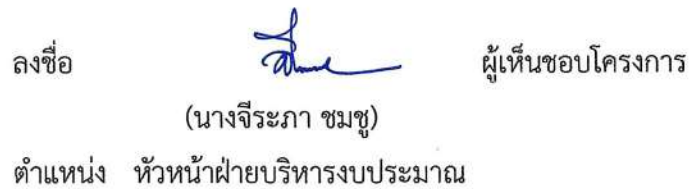 ลงชื่อ ผู้เห็นชอบโครงการ
(นางจีระภา ชมชู)
ตำแหน่ง หัวหน้าฝ่ายบริหารงบประมาณ